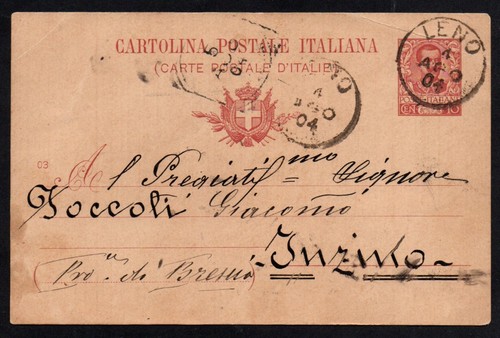 CARTOLINA POSTALE ITALIANA
(CARTE POSTALE D'ITALIE)
LENO
4
AGO
04
LENO
4
AGO
04
5
04
10
03
Al Pregiatif=mo Signore
Zoccoli Giacomo
Inzino
(Prov.a di Brescia)